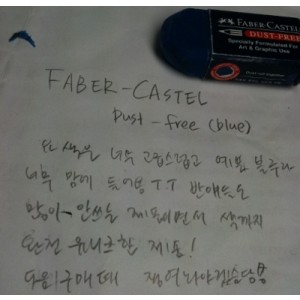 FABER-CASTEL
DUST-FREE
Specially Formulated For
Art & Graphic Use
FABER-CASTEL
Dust-free (blue)
와 색은 너무 고급스럽고 예쁜 블루라
너무 맘에 들어용 TT 반애들도
많이 안쓰는 제품이면서 색까지
완전 유니크한 제품!
다음 구매때 쟁여놔야겠슴당